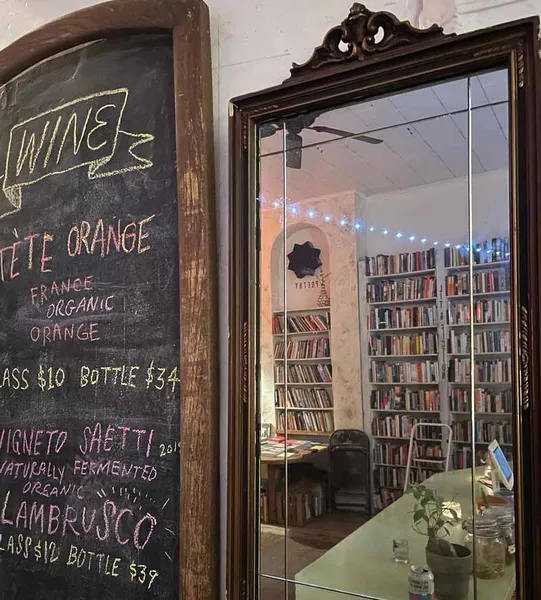 WINE
TÊTE ORANGE
FRANCE
ORGANIC
ORANGE
ASS $10 BOTTLE $34
IGNETO SAETTI 2019
NATURALLY FERMENTED
ORGANIC
LAMBRUSCO
LASS $12 BOTTLE $39
POETRY